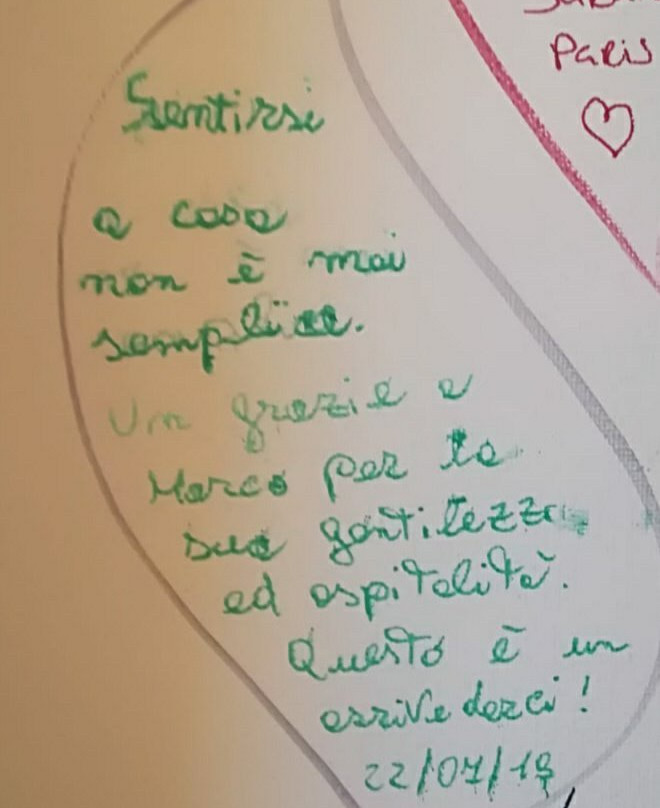 Paris
Sentirsi
a casa
non è mai
semplice.
Un grazie a
Marco per la
sua gentilezza
ed ospitalità.
Questo è un
arrivederci!
22/07/19